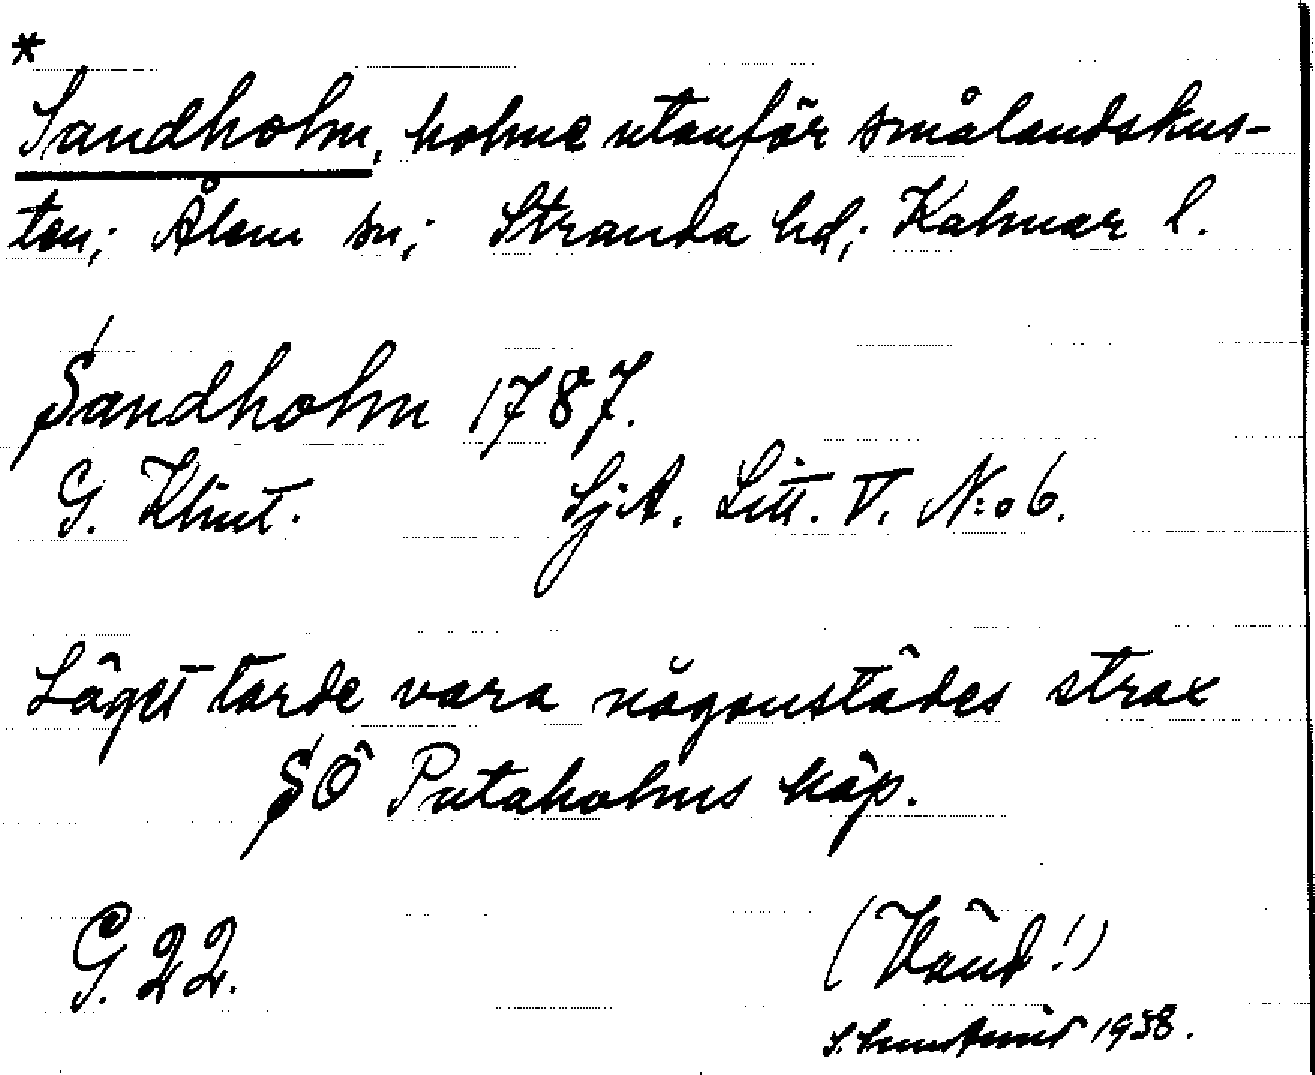 *
Sandholm, holme utanför smålandskus-
ten; Ålem sn; Stranda hd; Kalmar l.
Sandholm 1787.
G. Klint. SjA. Litt. V. N:o 6.
Läget torde vara någonstädes strax
SÖ Putaholms käp.
G. 22. (Vänd!)
S. 1938.